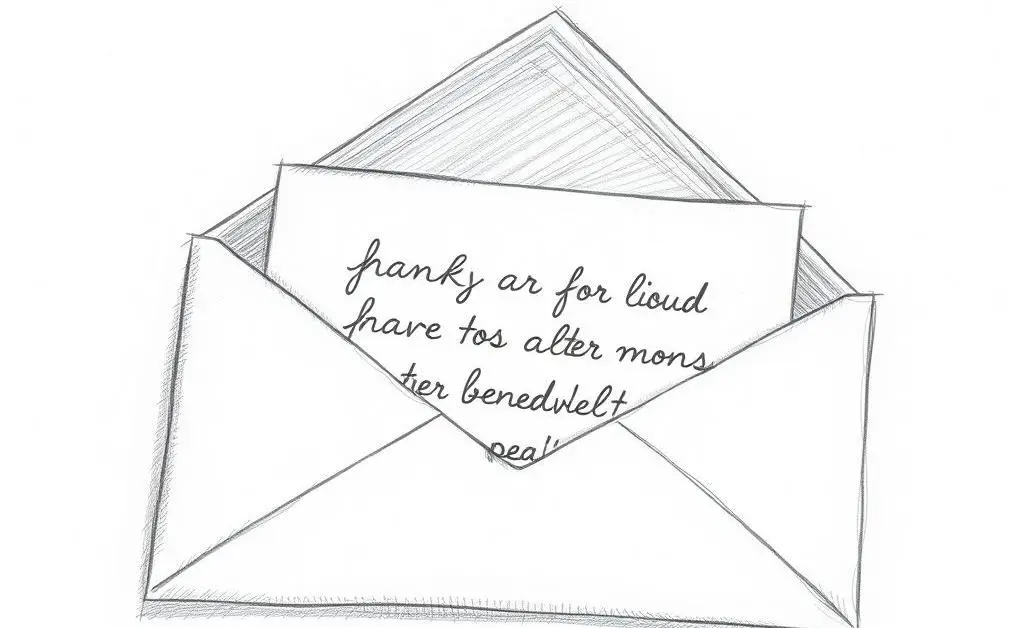 franky ar for lioud
frave tos alter mons
ter benedvlelt